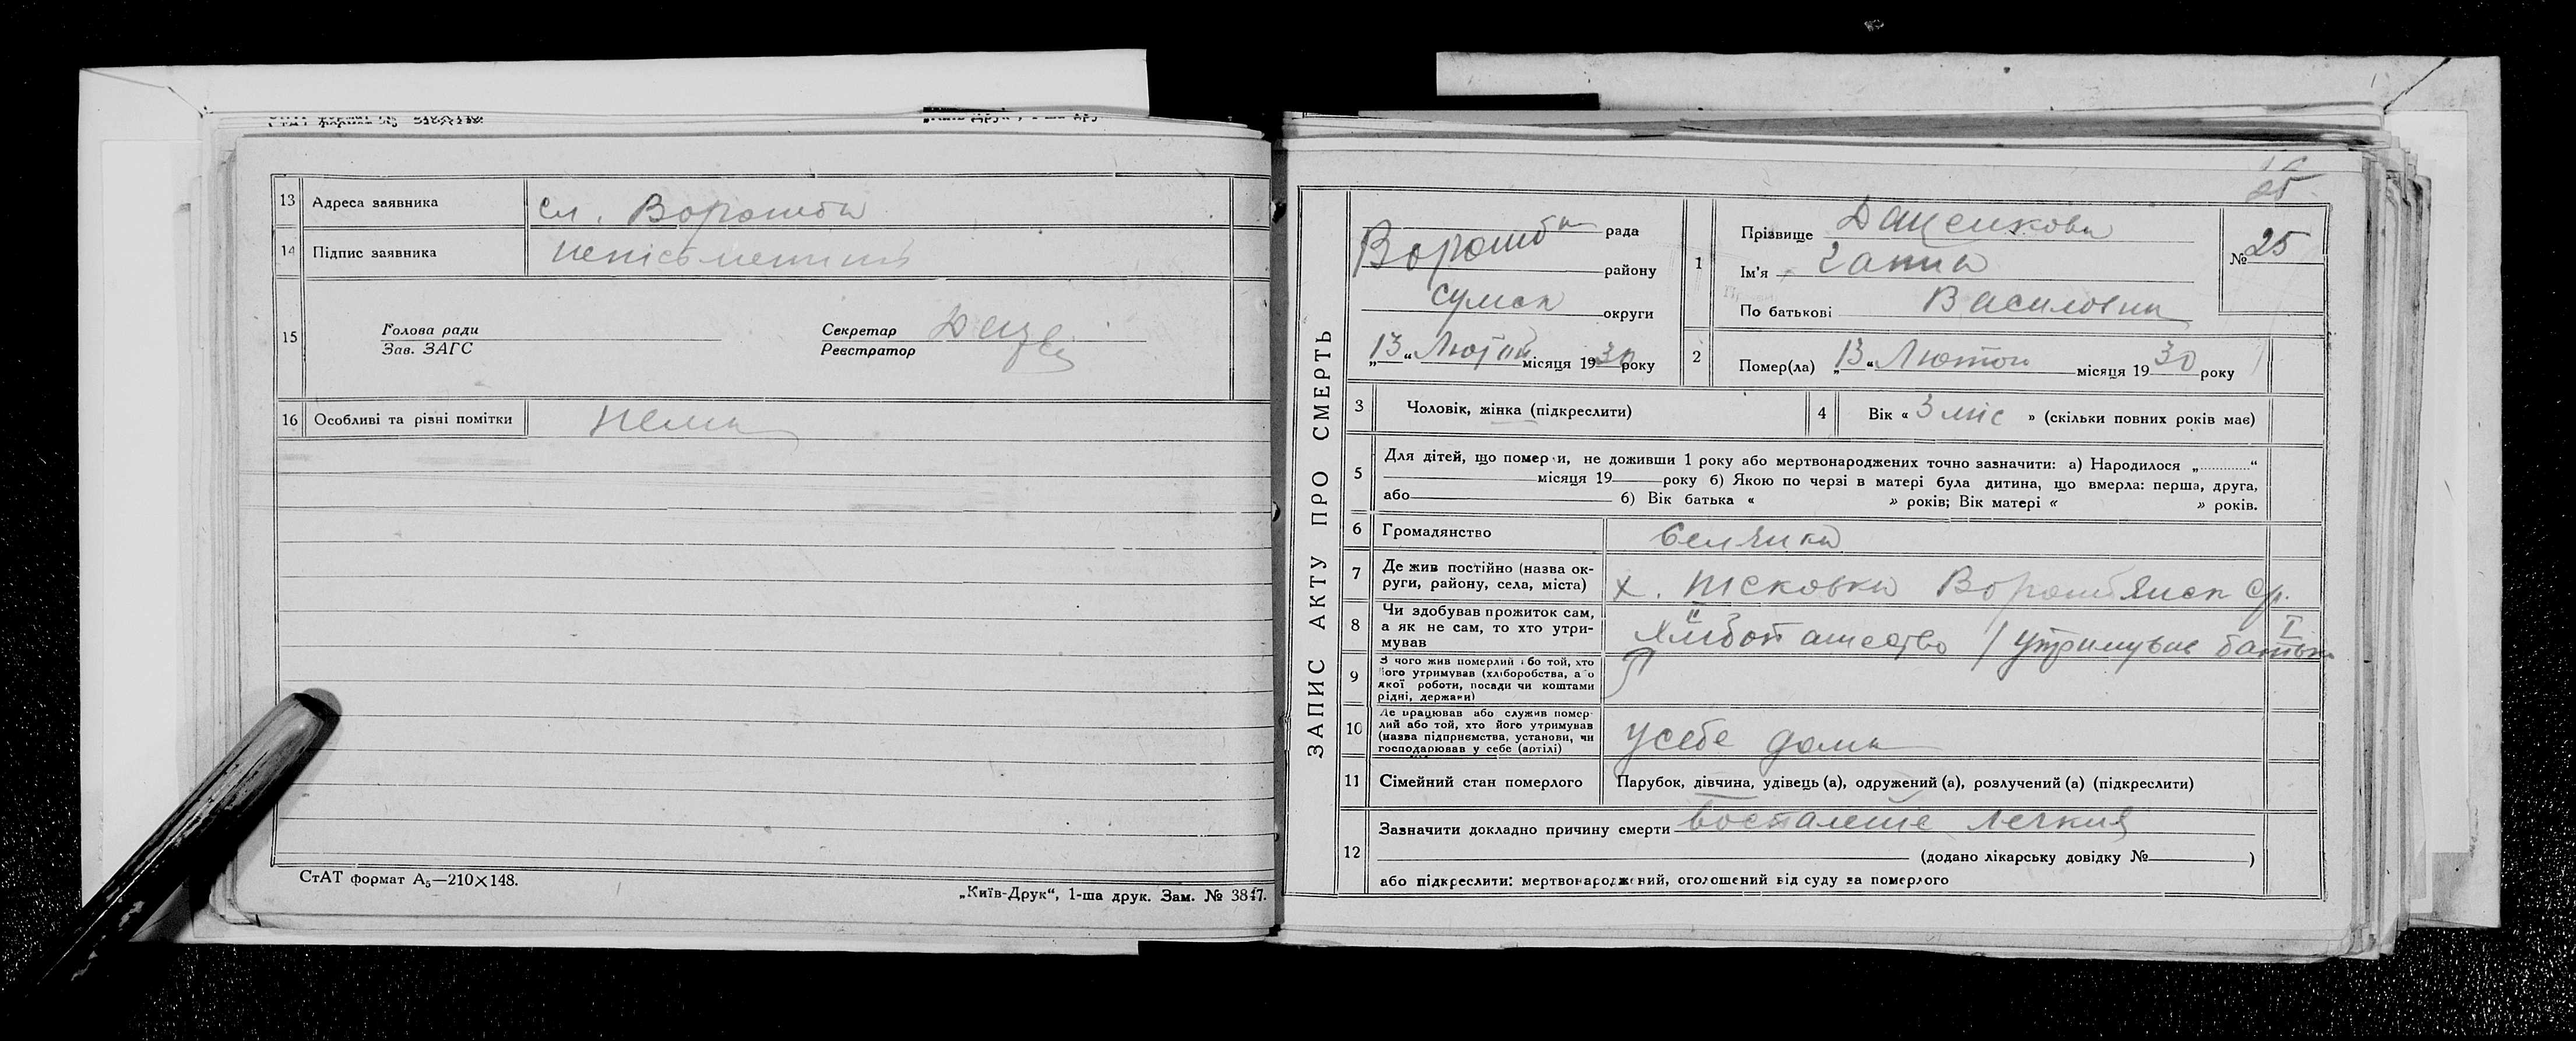 13 Адреса заявника сл. Ворожба
14 Підпис заявника неписьменний
15 Голова ради
Зав. ЗАГС
Секретар
Реєстратор
16 Особливі та різні помітки нема
СтАТ формат А5—210×148.
„Київ-Друк“, 1-ша друк. Зам. № 3847.
25
ЗАПИС АКТУ ПРО СМЕРТЬ
Ворожба рада
району
Сумск округи
„13“ Лютий місяця 1930 року
1 Прізвище
Ім'я Ганна
По батькові Василовна
№ 25
2 Помер(ла) „13“ Лютого місяця 1930 року
3 Чоловік, жінка (підкреслити)
4 Вік « 3 міс » (скільки повних років має)
5 Для дітей, що померли, не доживши 1 року або мертвонароджених точно зазначити: а) Народилося „............“
місяця 19 року б) Якою по черзі в матері була дитина, що вмерла: перша, друга,
або б) Вік батька « » років; Вік матері « » років.
6 Громадянство
7 Де жив постійно (назва ок-
руги, району, села, міста) х. Пісковка Ворожбянск с/р.
8 Чи здобував прожиток сам,
а як не сам, то хто утри-
мував утримував батько I
9 З чого жив померлий або той, хто
його утримував (хліборобства, або
якої роботи, посади чи коштами
рідні, держави)
10 Де працював або служив помер-
лий або той, хто його утримував
(назва підприємства, установи, чи
господарював у себе (артілі) у себе дома
11 Сімейний стан померлого Парубок, дівчина, удівець (а), одружений (а), розлучений (а) (підкреслити)
12 Зазначити докладно причину смерти воспаленіє легких
(додано лікарську довідку № )
або підкреслити: мертвонароджений, оголошений від суду за померлого